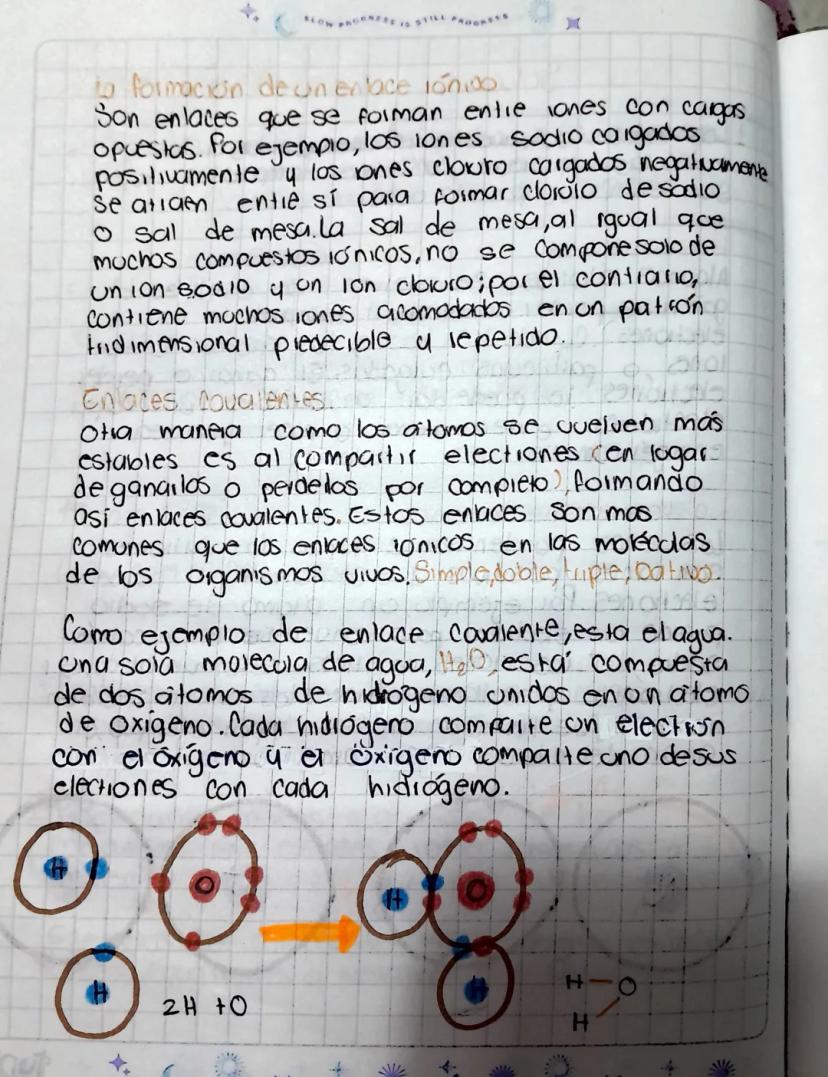 SLOW PROGRESS IS STILL PROGRESS
La formación de un enlace iónico
Son enlaces que se forman entre iones con cargas
opuestas. Por ejemplo, los iones sodio cargados
positivamente y los iones cloruro cargados negativamente
se atraen entre sí para formar cloruro de sodio
o sal de mesa. La sal de mesa, al igual que
muchos compuestos iónicos, no se compone solo de
un ion sodio y un ion cloruro; por el contrario,
contiene muchos iones acomodados en un patrón
tridimensional predecible y repetido.
Enlaces covalentes.
Otra manera como los átomos se vuelven más
estables es al compartir electrones (en lugar
de ganarlos o perdelos por completo), formando
así enlaces covalentes. Estos enlaces son mas
comunes que los enlaces iónicos en las moléculas
de los organismos vivos. Simple, doble, triple, Dativo.
Como ejemplo de enlace covalente, esta el agua.
una sola molecula de agua, H₂O, está compuesta
de dos átomos de hidrógeno unidos en un átomo
de oxígeno. Cada hidrógeno comparte un electrón
con el óxígeno y el óxígeno comparte uno de sus
electrones con cada hidrógeno.
H O H O
H 2H + O H H — O
H